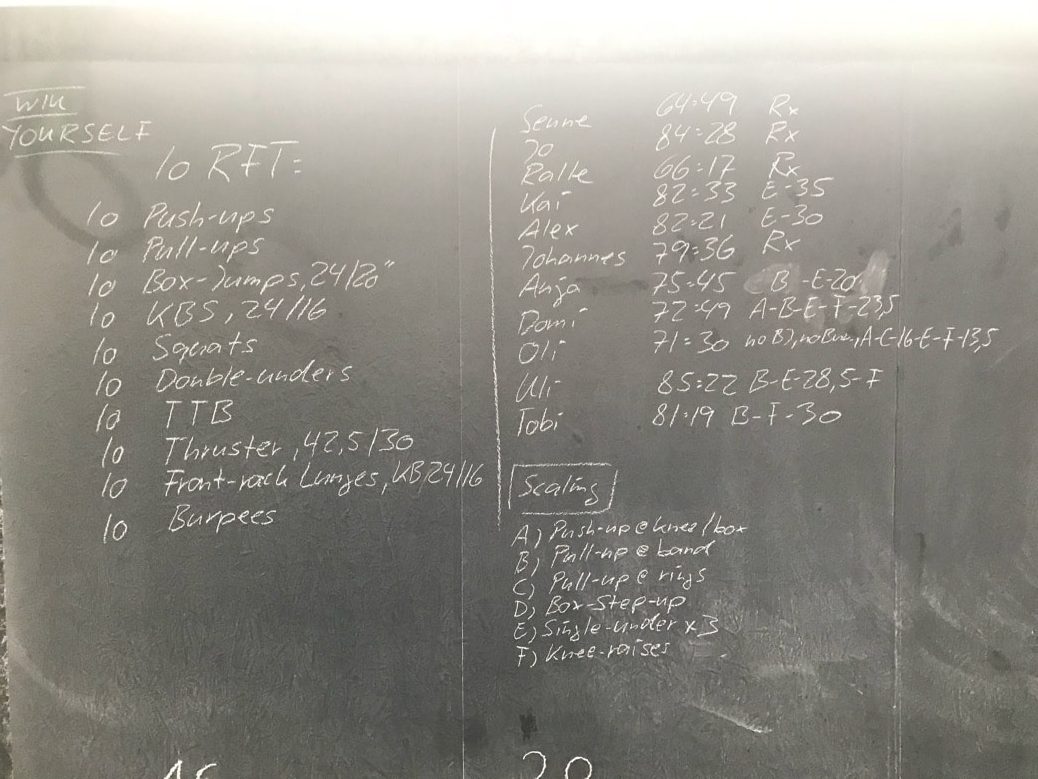 WIN
YOURSELF
10 RFT:
10 Push-ups
10 Pull-ups
10 Box-Jumps, 24/20"
10 KBS, 24/16
10 Squats
10 Double-unders
10 TTB
10 Thruster, 42,5/30
10 Front-rack Lunges, KB 24/16
10 Burpees
Senne 64:49 Rx
Jo 84:28 Rx
Ralle 66:17 Rx
Kai 82:33 E-35
Alex 82:21 E-30
Johannes 79:36 Rx
Anja 75:45 B-E-20
Domi 72:49 A-B-E-F-23,5
Oli 71:30 no BJ, no Bur, A-C-16-E-F-13,5
Uli 85:22 B-E-28,5-F
Tobi 81:19 B-F-30
Scaling
A) Push-up @ knee/box
B) Pull-up @ band
C) Pull-up @ rings
D) Box-Step-up
E) Single-under x 3
F) Knee-raises